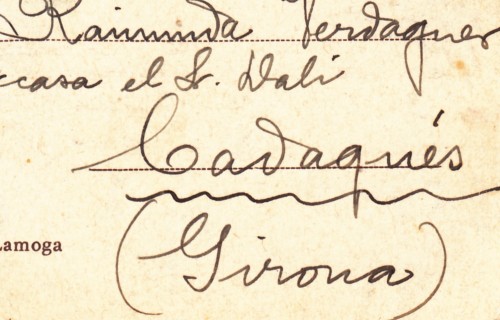 Raimunda Verdaguer
casa el Sr. Dalí
Cadaqués
Lamoga
(Girona)